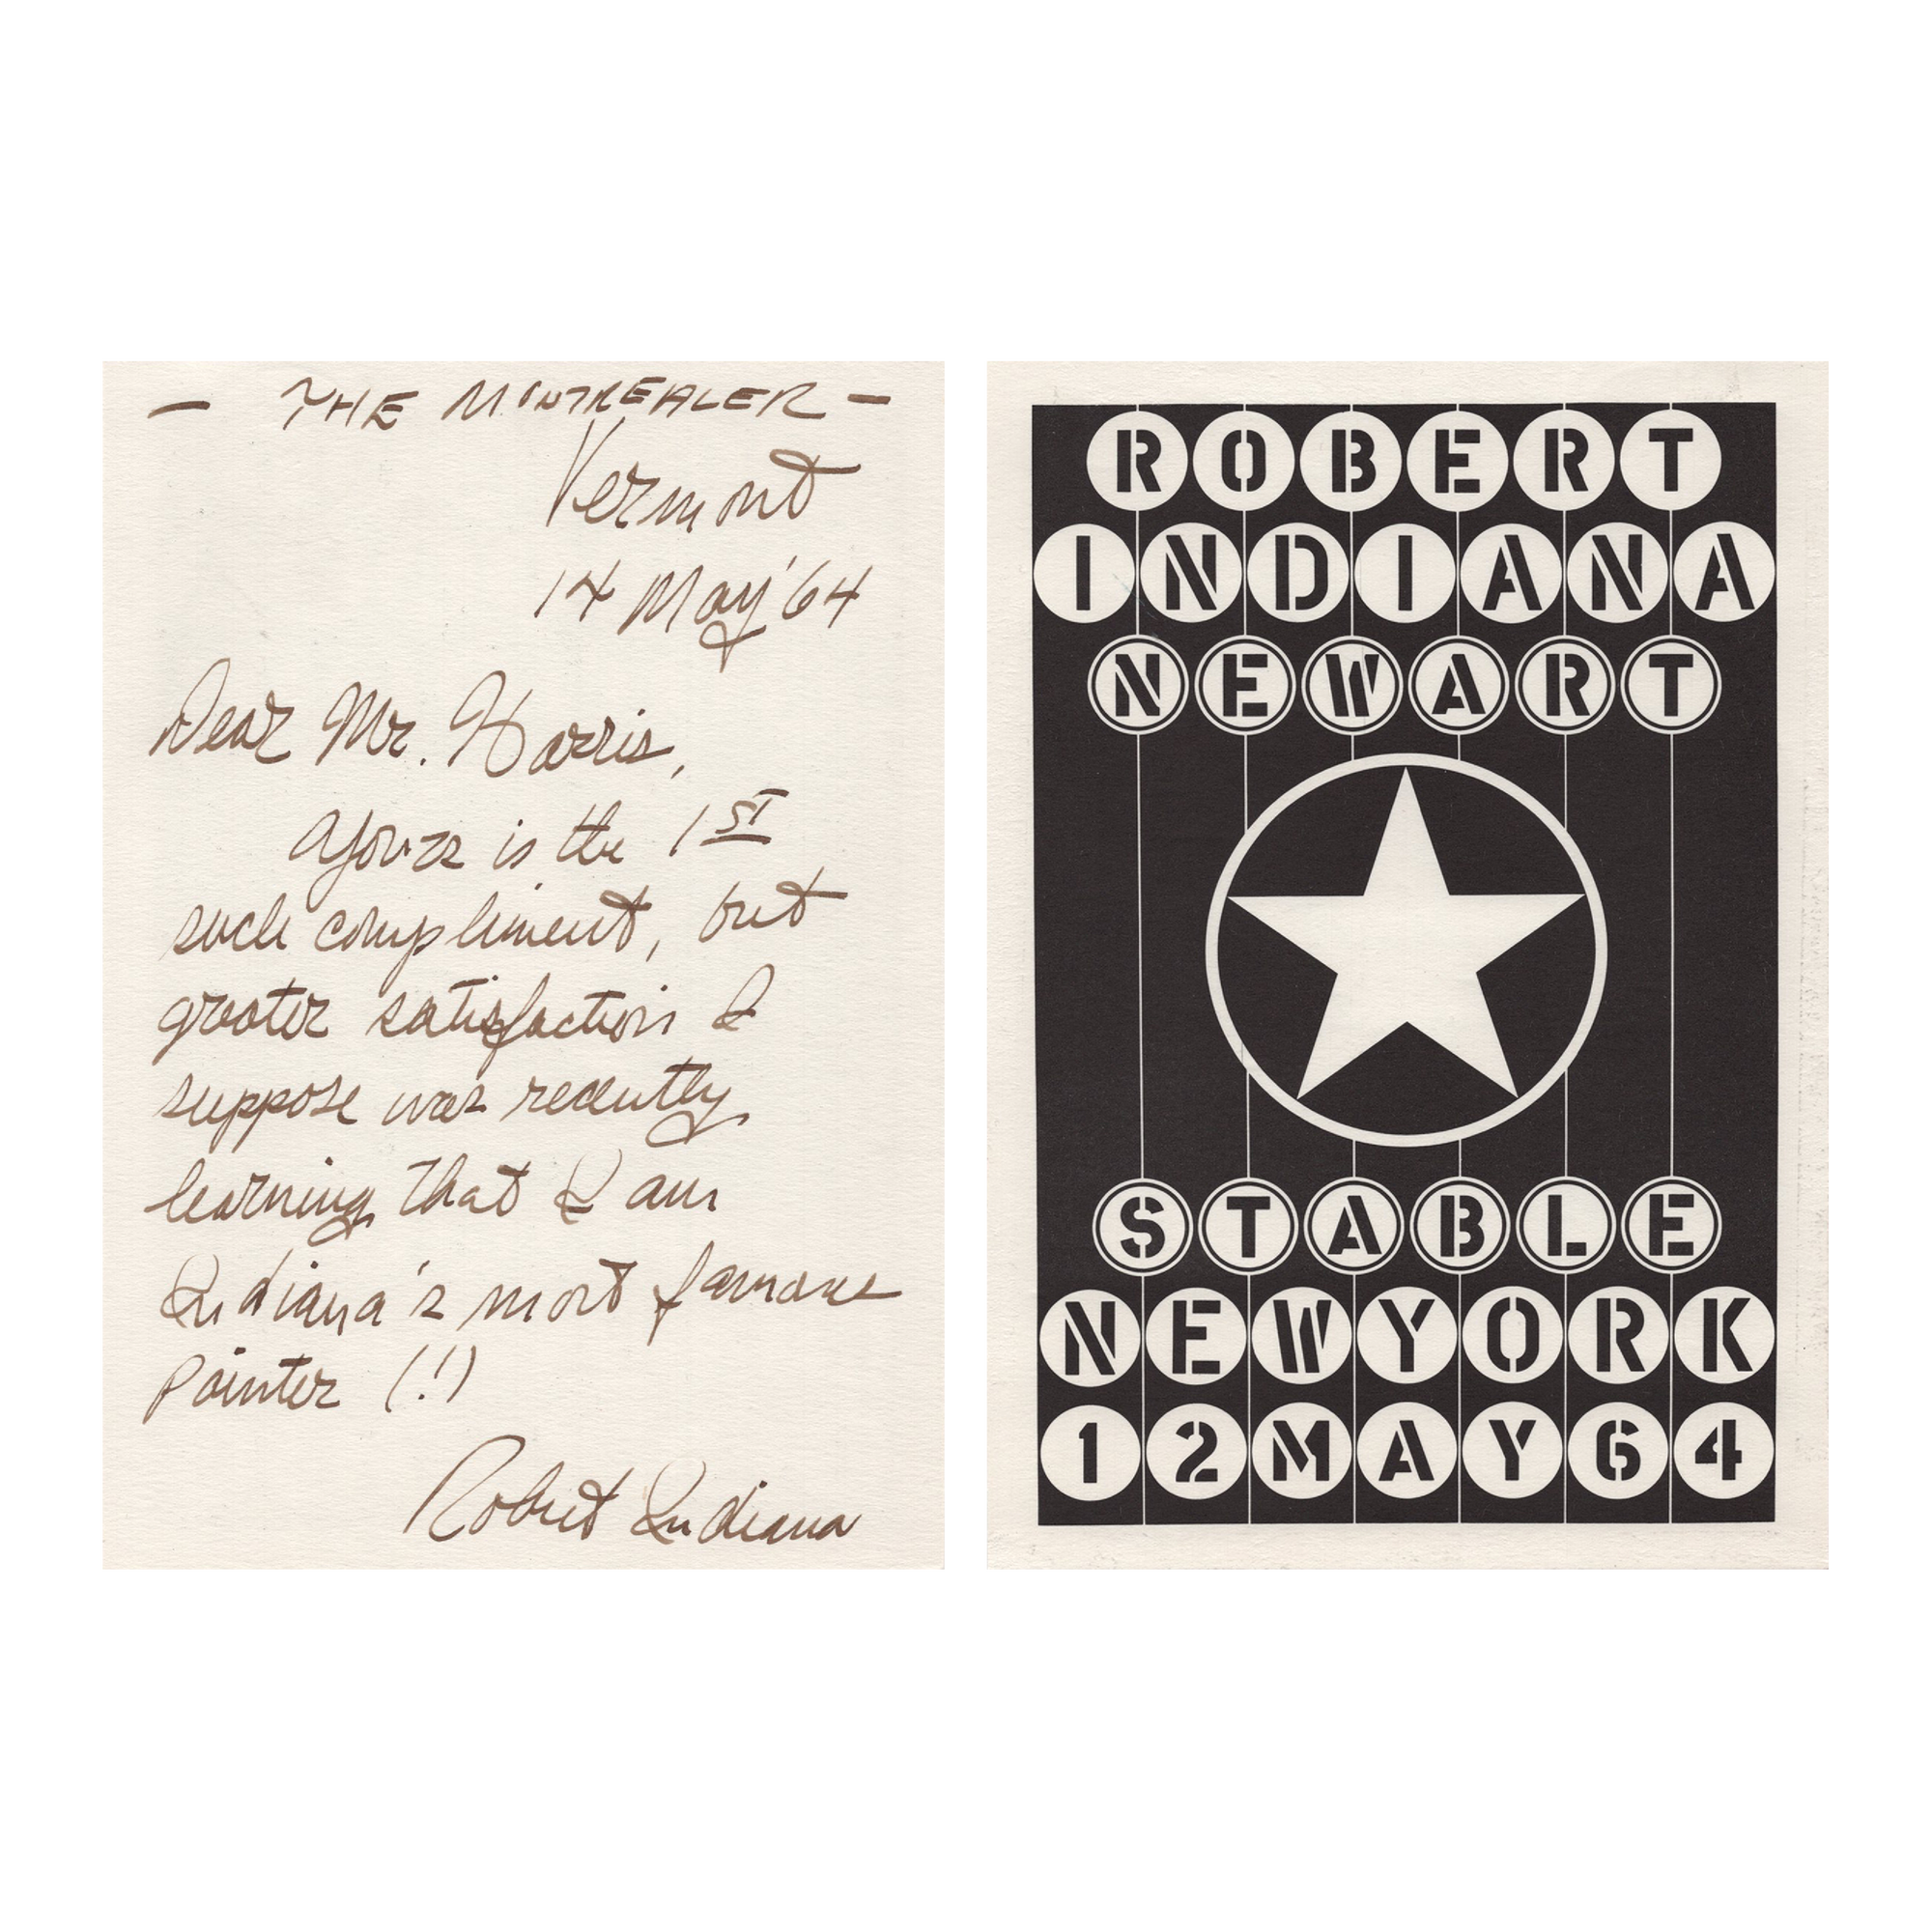 — THE MONTREALER —
Vermont
14 May '64
Dear Mr. Harris,
Yours is the 1ST
such compliment, but
greater satisfaction I
suppose was recently
learning that I am
Indiana's most famous
painter (!)
Robert Indiana
ROBERT
INDIANA
NEWART
STABLE
NEWYORK
12MAY64